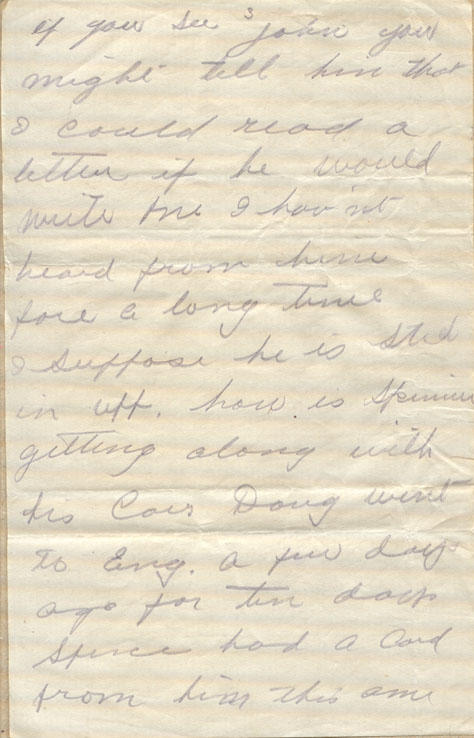 3
if you see John you
might tell him that
I could read a
letter if he would
write one I hav'nt
heard from him
fore a long time
I suppose he is still
in upp. how is
getting along with
his Cows Doug went
to Eng. a few days
ago for ten days
Spence had a Card
from him this